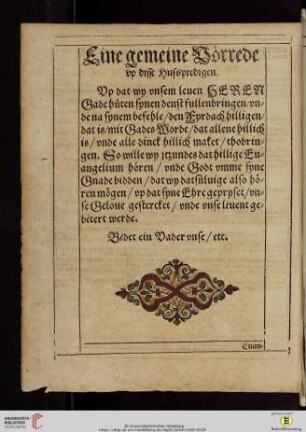 Eine gemeine Vörrede
vp disse Hußpredigen.
Vp dat wy vnsem leuen HEREN
Gade hüten synen denst fullenbringen / vn-
de na synem befehle / den Fyrdach hilligen /
dat is / mit Gades Worde / dat allene hillich
is / vnde alle dinck hillich maket / thobrin-
gen. So wille wy jtzundes dat hillige Eu-
angelium hören / vnde Godt vmme syne
Gnade bidden / dat wy datsüluige also hö-
ren mögen / vp dat syne Ehre gepryset / vn-
se Geloue gestercket / vnde vnse leuent ge-
betert werde.
Bedet ein Vader vnse / etc.
Euan-
UNIVERSITÄTS-
BIBLIOTHEK
HEIDELBERG
© Universitätsbibliothek Heidelberg